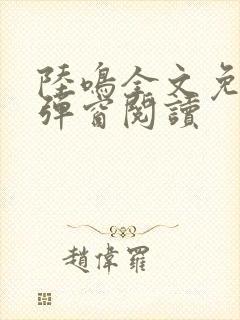 陸鳴全文免
彈窗閱讀
趙偉羅